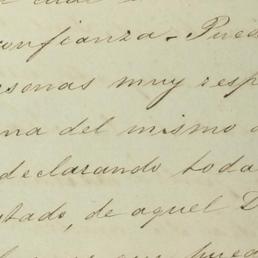 confianza. Pued
sonas muy resp
ma del mismo
declarando toda
stado, de aquel D